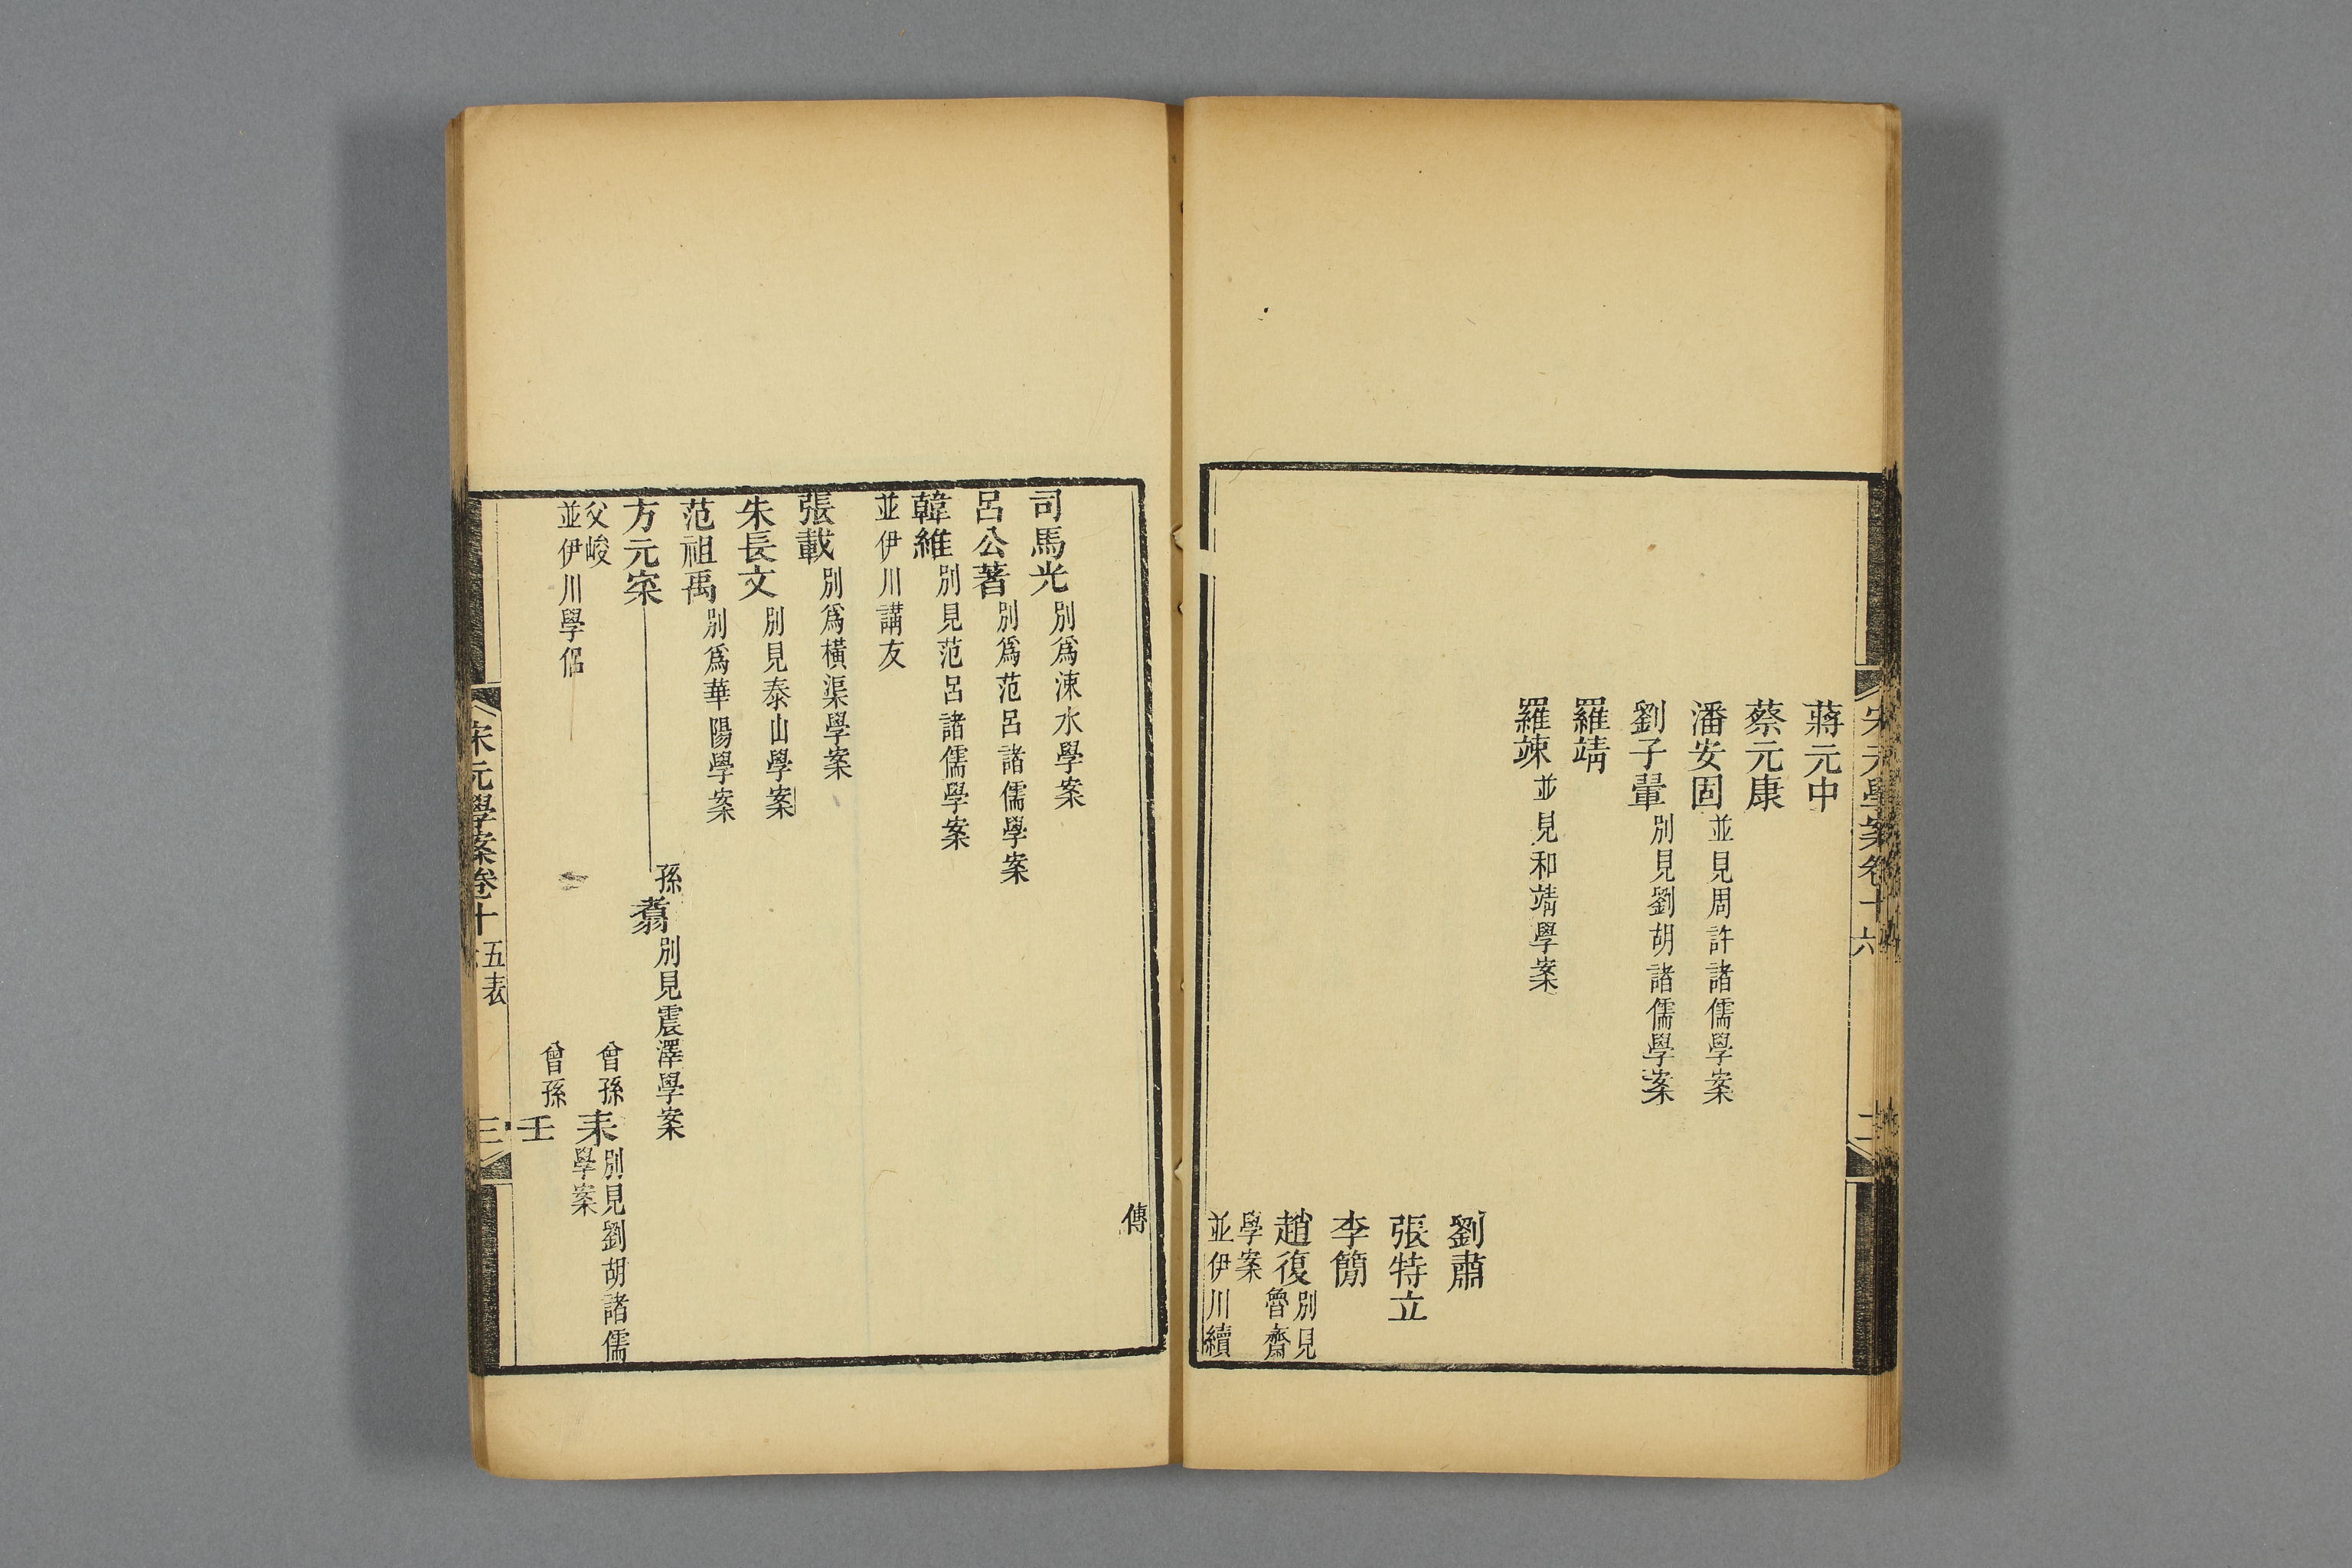 宋元學案卷十六
蔣元中
蔡元康
潘安固並見周許諸儒學案
劉子翬別見劉胡諸儒學案
羅靖
羅竦並見和靖學案
劉肅
張特立
李簡
趙復別見魯齋
學案
並伊川續
傳
司馬光別爲涑水學案
呂公著別爲范呂諸儒學案
韓維別見范呂諸儒學案
並伊川講友
張載別爲橫渠學案
朱長文別見泰山學案
范祖禹別爲華陽學案
方元寀
孫翥別見震澤學案
曾孫耒別見劉胡諸儒
學案
父峻
並伊川學侶
曾孫壬
宋元學案卷十
五表
三